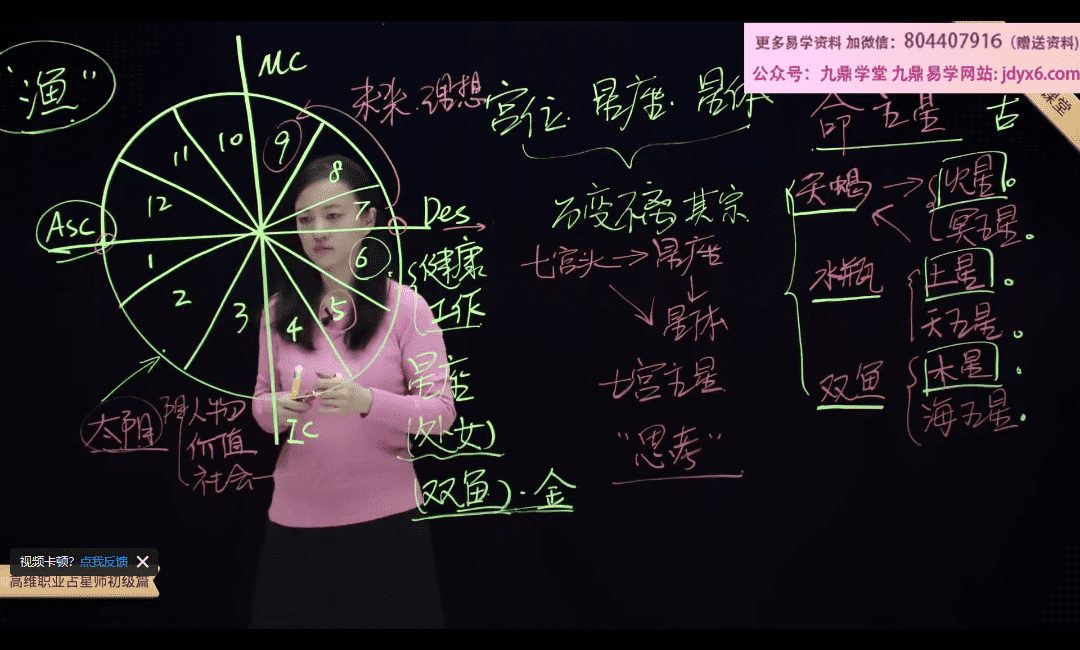 更多易学资料 加微信：804407916（赠送资料）
公众号：九鼎学堂 九鼎易学网站：jdyx6.com
课堂
"渔"
MC
未来.理想
宫位.星座.星体
命主星
古
万变不离其宗
Asc
Des
1
2
3
4
5
6
7
8
9
10
11
12
IC
健康
工作
星座
(处女)
(双鱼)·金
七宫头→星座
星体
七宫主星
"思考"
天蝎
火星。
冥王星。
水瓶
土星。
天王星。
双鱼
木星.
海王星.
太阳
阳人物
价值
社会
视频卡顿？点我反馈
高维职业占星师初级篇